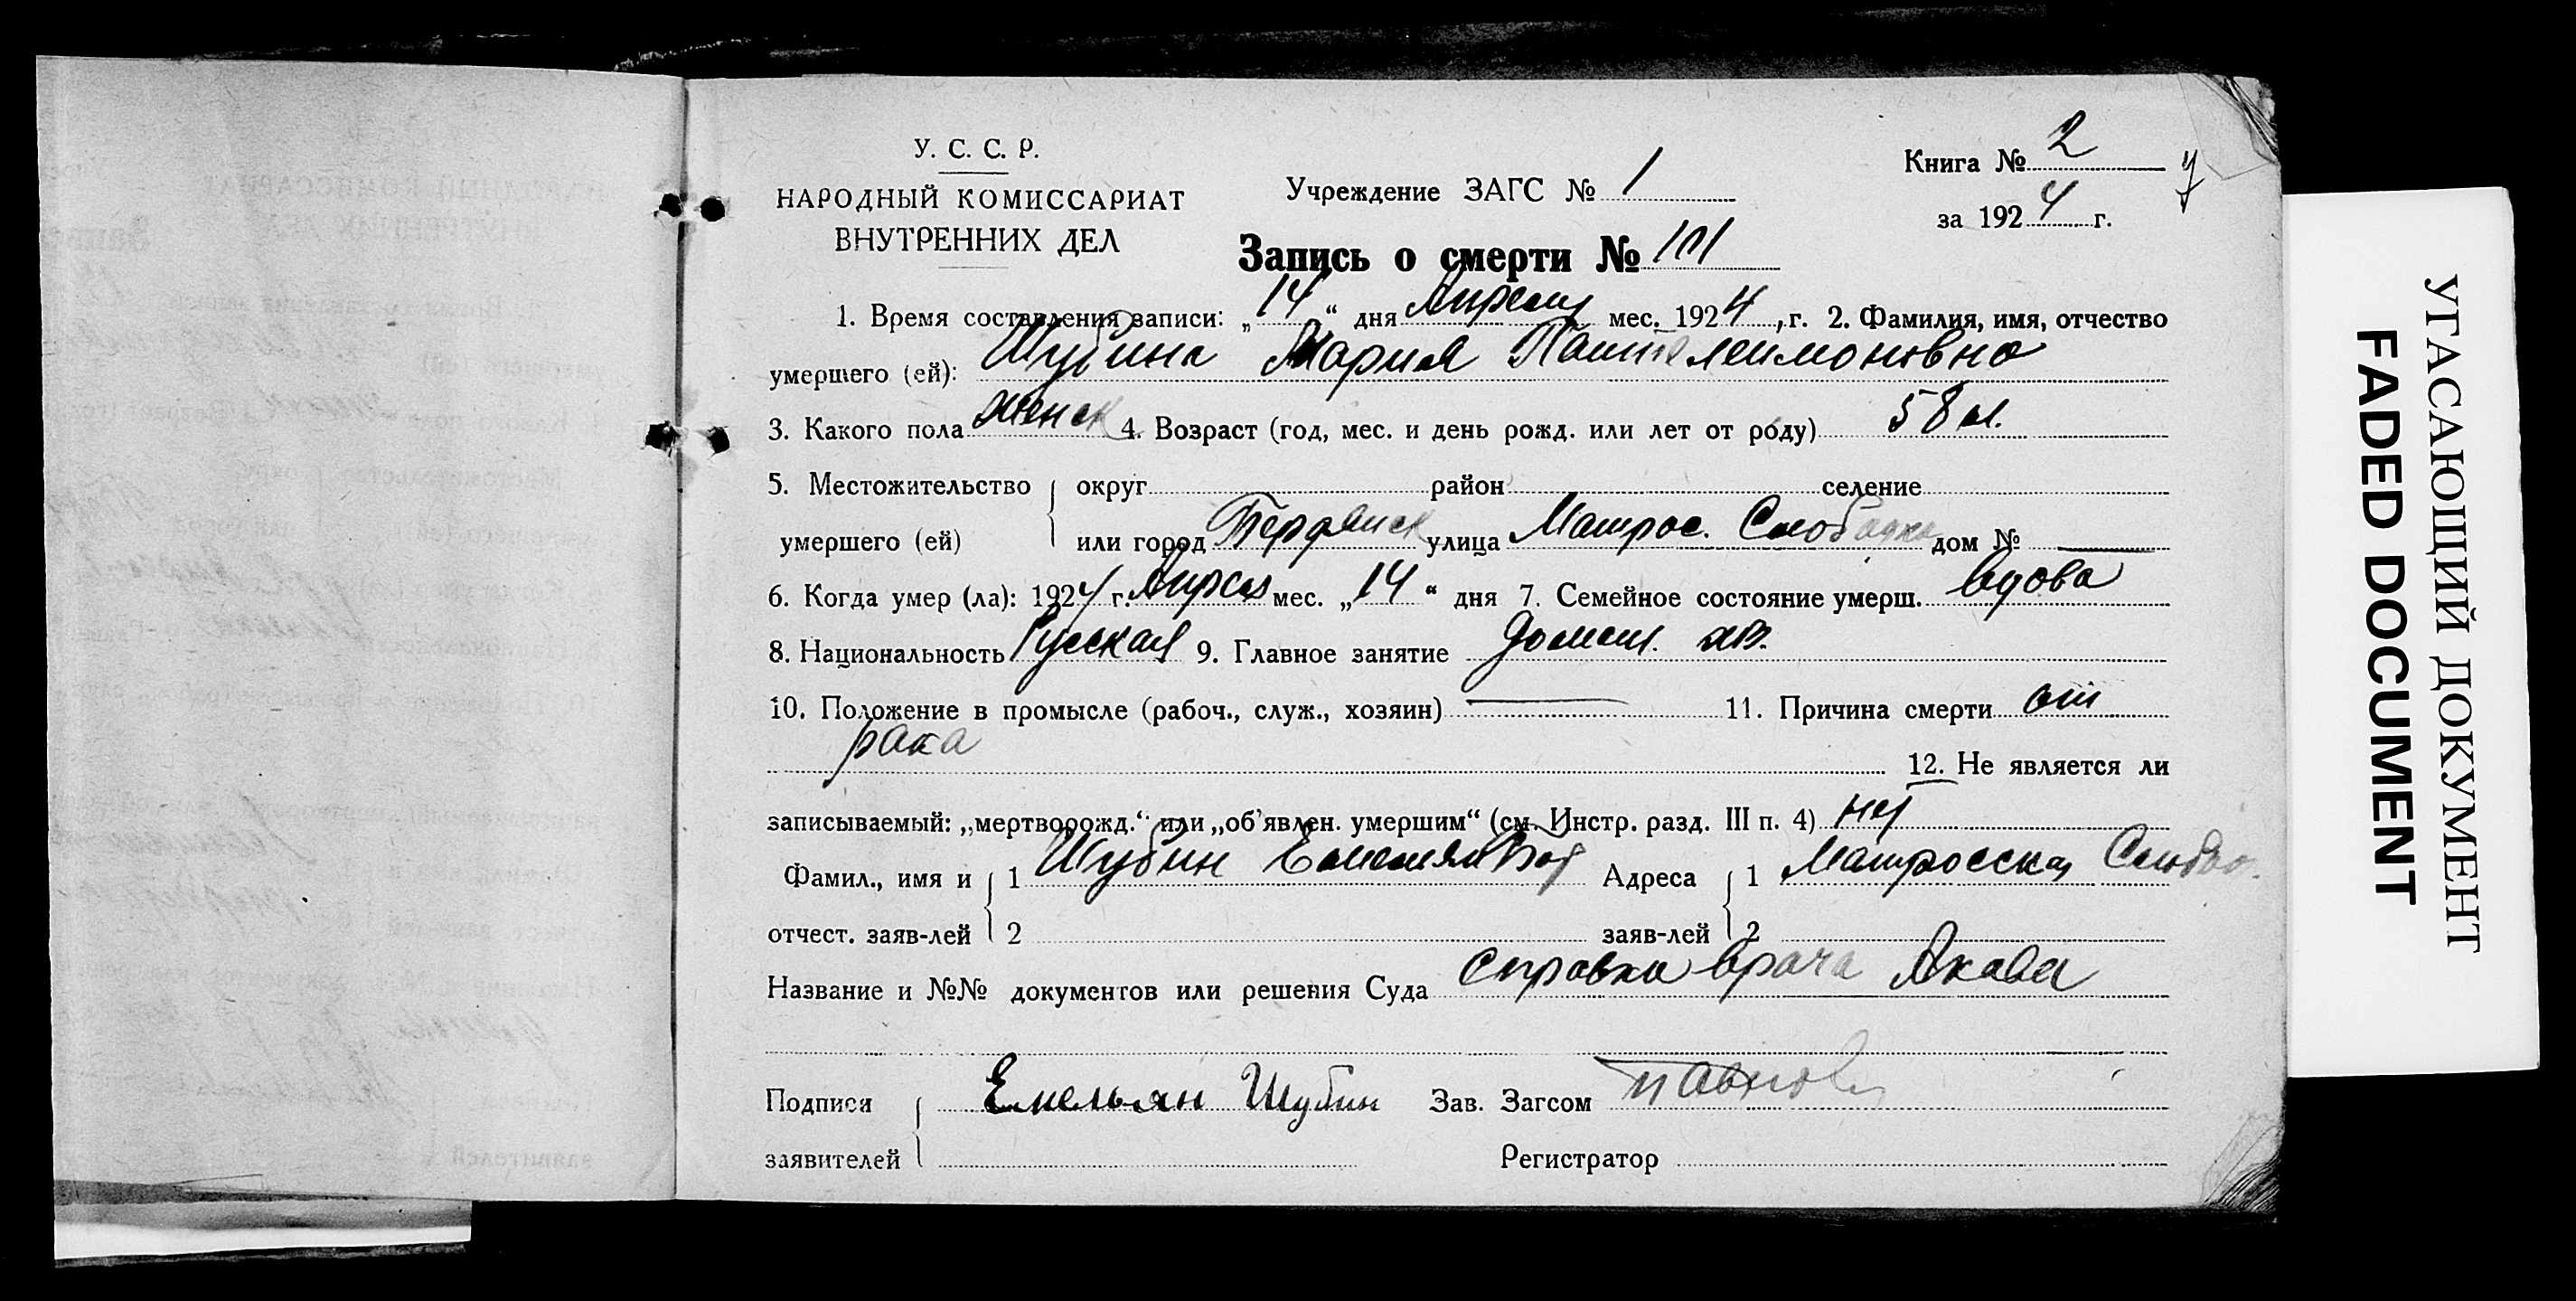 У. С. С. Р.
НАРОДНЫЙ КОМИССАРИАТ
ВНУТРЕННИХ ДЕЛ
Учреждение ЗАГС № 1
Книга № 2
за 1924 г.
Запись о смерти № 101
1. Время составления записи: „14“ дня Апреля мес. 1924, г. 2. Фамилия, имя, отчество
умершего (ей): Шубина Мария Пантелеимоновна
3. Какого пола женск 4. Возраст (год, мес. и день рожд. или лет от роду) 58 л.
5. Местожительство округ район селение
умершего (ей) или город Бердянск улица Матрос. Слободка дом № —
6. Когда умер (ла): 1924 г. Апреля мес. „14“ дня 7. Семейное состояние умерш. вдова
8. Национальность Русская 9. Главное занятие домаш. хоз.
10. Положение в промысле (рабоч., служ., хозяин) — 11. Причина смерти от
рака
12. Не является ли
записываемый: „мертворожд.“ или „об'явлен. умершим“ (см. Инстр. разд. III п. 4) нет
Фамил., имя и 1 Шубин Емельян Адреса 1 Матросская Слобод.
отчест. заяв-лей 2 заяв-лей 2
Название и №№ документов или решения Суда Справка врача
Подписи Емельян Шубин Зав. Загсом
заявителей Регистратор
УГАСАЮЩИЙ ДОКУМЕНТ
FADED DOCUMENT